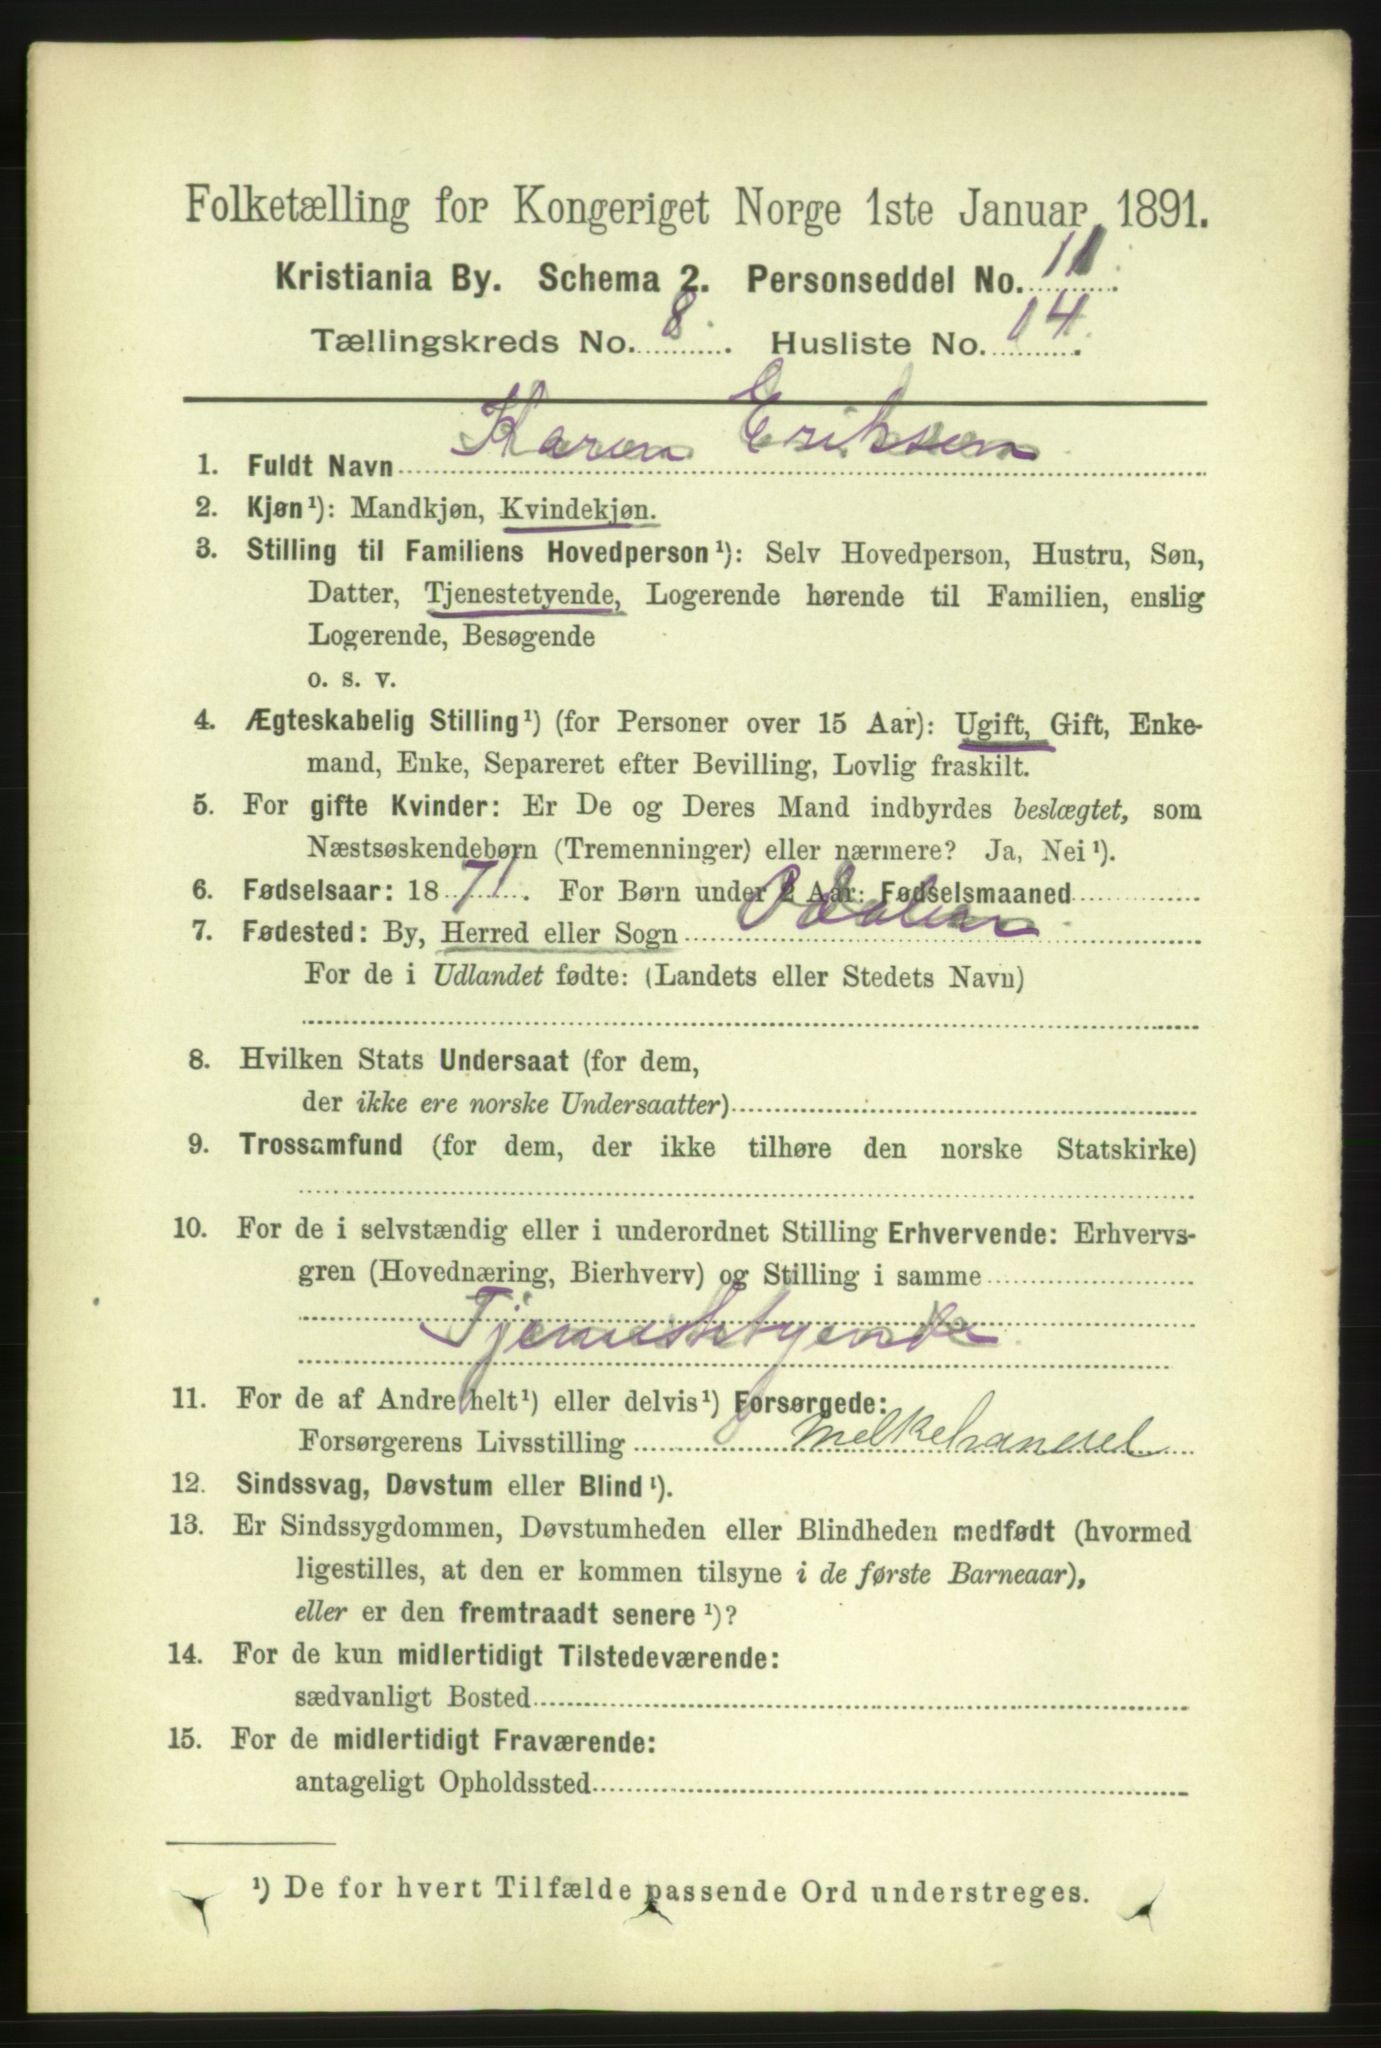 Folketælling for Kongeriget Norge 1ste Januar 1891.
Kristiania By. Schema 2. Personseddel No. 11.
Tællingskreds No. 8. Husliste No. 14.
1. Fuldt Navn Karen Eriksen
2. Kjøn¹): Mandkjøn, Kvindekjøn.
3. Stilling til Familiens Hovedperson¹): Selv Hovedperson, Hustru, Søn,
Datter, Tjenestetyende, Logerende hørende til Familien, enslig
Logerende, Besøgende
o. s. v.
4. Ægteskabelig Stilling¹) (for Personer over 15 Aar): Ugift, Gift, Enke-
mand, Enke, Separeret efter Bevilling, Lovlig fraskilt.
5. For gifte Kvinder: Er De og Deres Mand indbyrdes beslægtet, som
Næstsøskendebørn (Tremenninger) eller nærmere? Ja, Nei¹).
6. Fødselsaar: 1871. For Børn under 2 Aar: Fødselsmaaned
7. Fødested: By, Herred eller Sogn Odalen
For de i Udlandet fødte: (Landets eller Stedets Navn)
8. Hvilken Stats Undersaat (for dem,
der ikke ere norske Undersaatter)
9. Trossamfund (for dem, der ikke tilhøre den norske Statskirke)
10. For de i selvstændig eller i underordnet Stilling Erhvervende: Erhvervs-
gren (Hovednæring, Bierhverv) og Stilling i samme
Tjenestetyende
11. For de af Andre helt¹) eller delvis¹) Forsørgede:
Forsørgerens Livsstilling melkehandel
12. Sindssvag, Døvstum eller Blind¹).
13. Er Sindssygdommen, Døvstumheden eller Blindheden medfødt (hvormed
ligestilles, at den er kommen tilsyne i de første Barneaar),
eller er den fremtraadt senere¹)?
14. For de kun midlertidigt Tilstedeværende:
sædvanligt Bosted
15. For de midlertidigt Fraværende:
antageligt Opholdssted
¹) De for hvert Tilfælde passende Ord understreges.